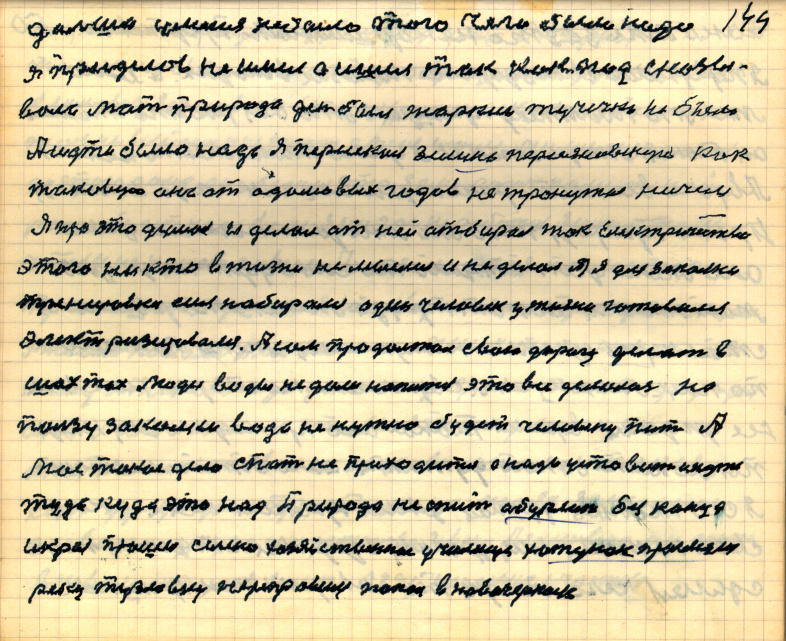 дальша имения незяло того чяго было надо 149
я пределов не имел а ишел так как под сказы-
вола мат природа ден был жаркии тучички не было
А итти было надо Я пересекал землю переясловскую как
таковую она от адамовых годов не тронутая ничем
Я про это думал и делал от ней отбирал ток електричитва
этого никто в жизни не имел и не делал А я для закалки
тренировки сил набирал один человек у жизни готовился
Электризировался. А сам продолжал свою дорогу делат в
шахтах люди воды не дали напится это все делалос на
ползу закалки вода не нужно будет человеку пит А
мое такое дело спат не приходится а надо устават и идти
туда куда это над Природа не спит абурлит без конца
и края прошел селско хозяйственное училище хотунок промежду
реку тузловку направили попал в новочеркаск